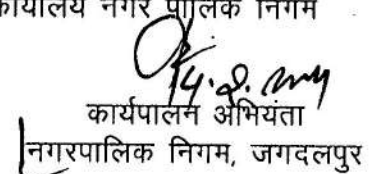 कार्यालय नगर पालिक निगम
कार्यपालन अभियंता
नगरपालिक निगम, जगदलपुर